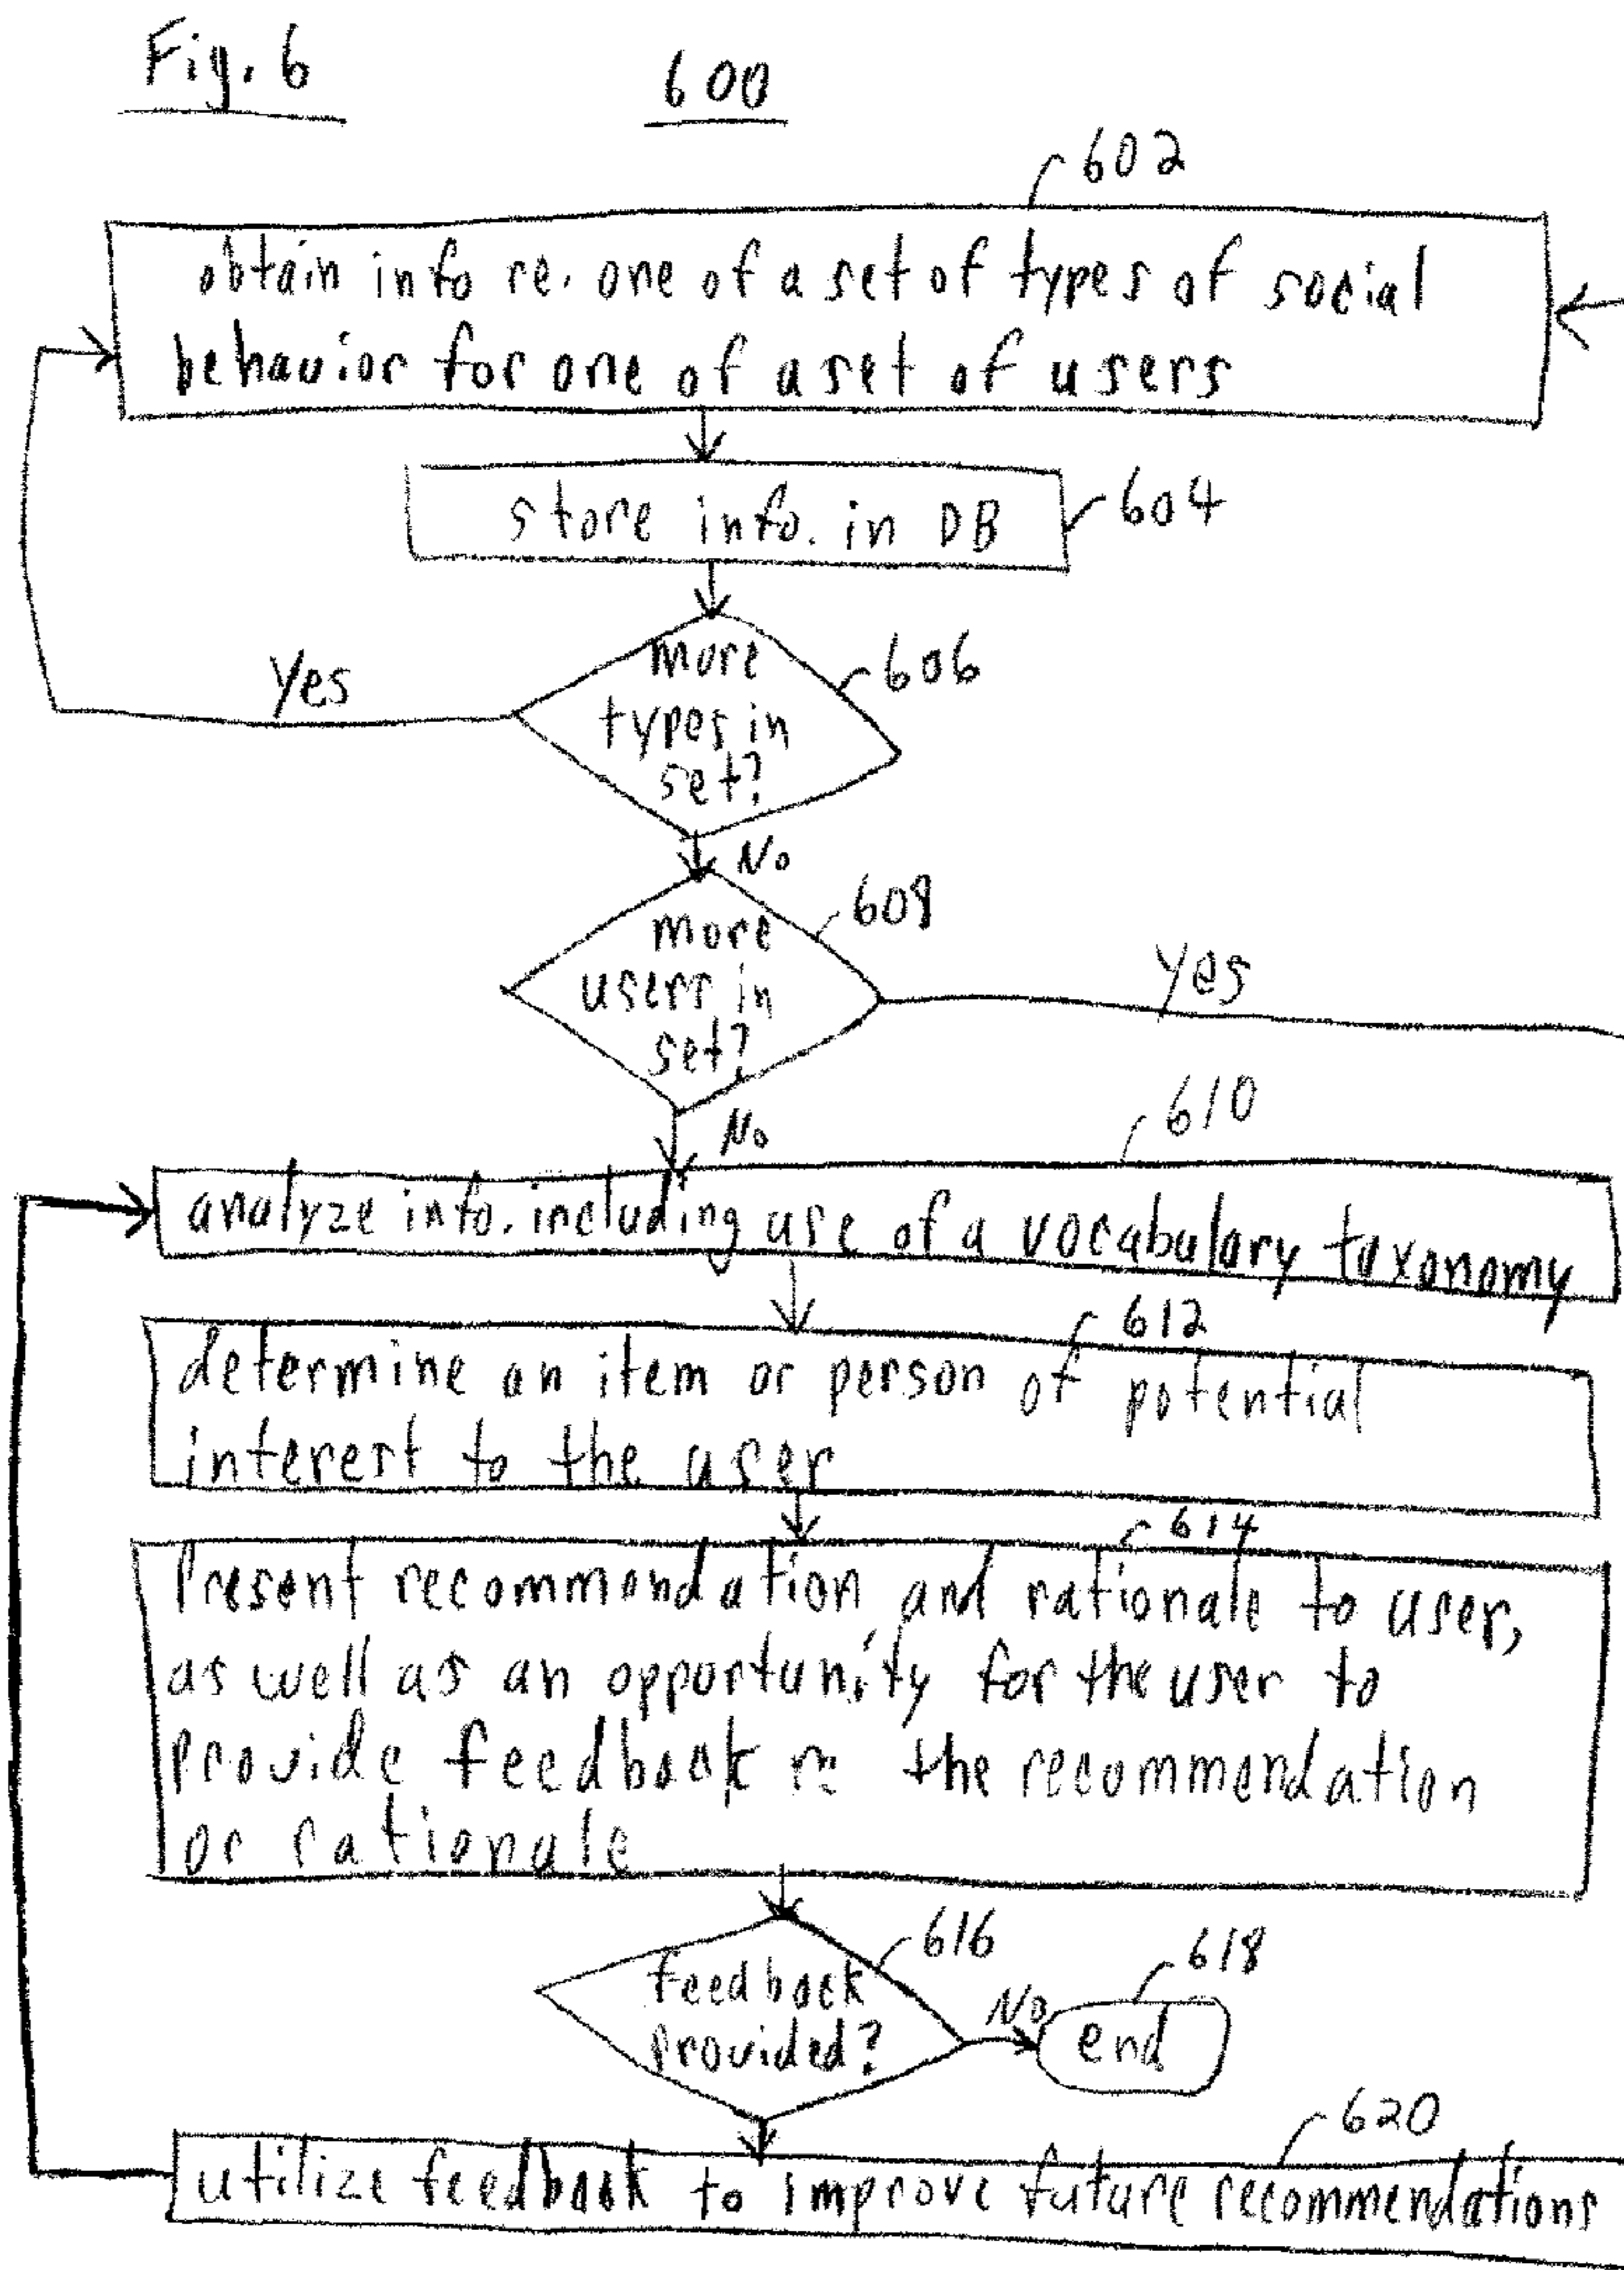 Fig. 6
600
602
obtain info re. one of a set of types of social
behavior for one of a set of users
store info. in DB
604
more
types in
set?
606
Yes
No
more
users in
set?
608
Yes
No
610
analyze info. including use of a vocabulary taxonomy
612
determine an item or person of potential
interest to the user
614
Present recommendation and rationale to user,
as well as an opportunity for the user to
provide feedback re the recommendation
or rationale
feedback
provided?
616
No
618
end
620
utilize feedback to improve future recommendations